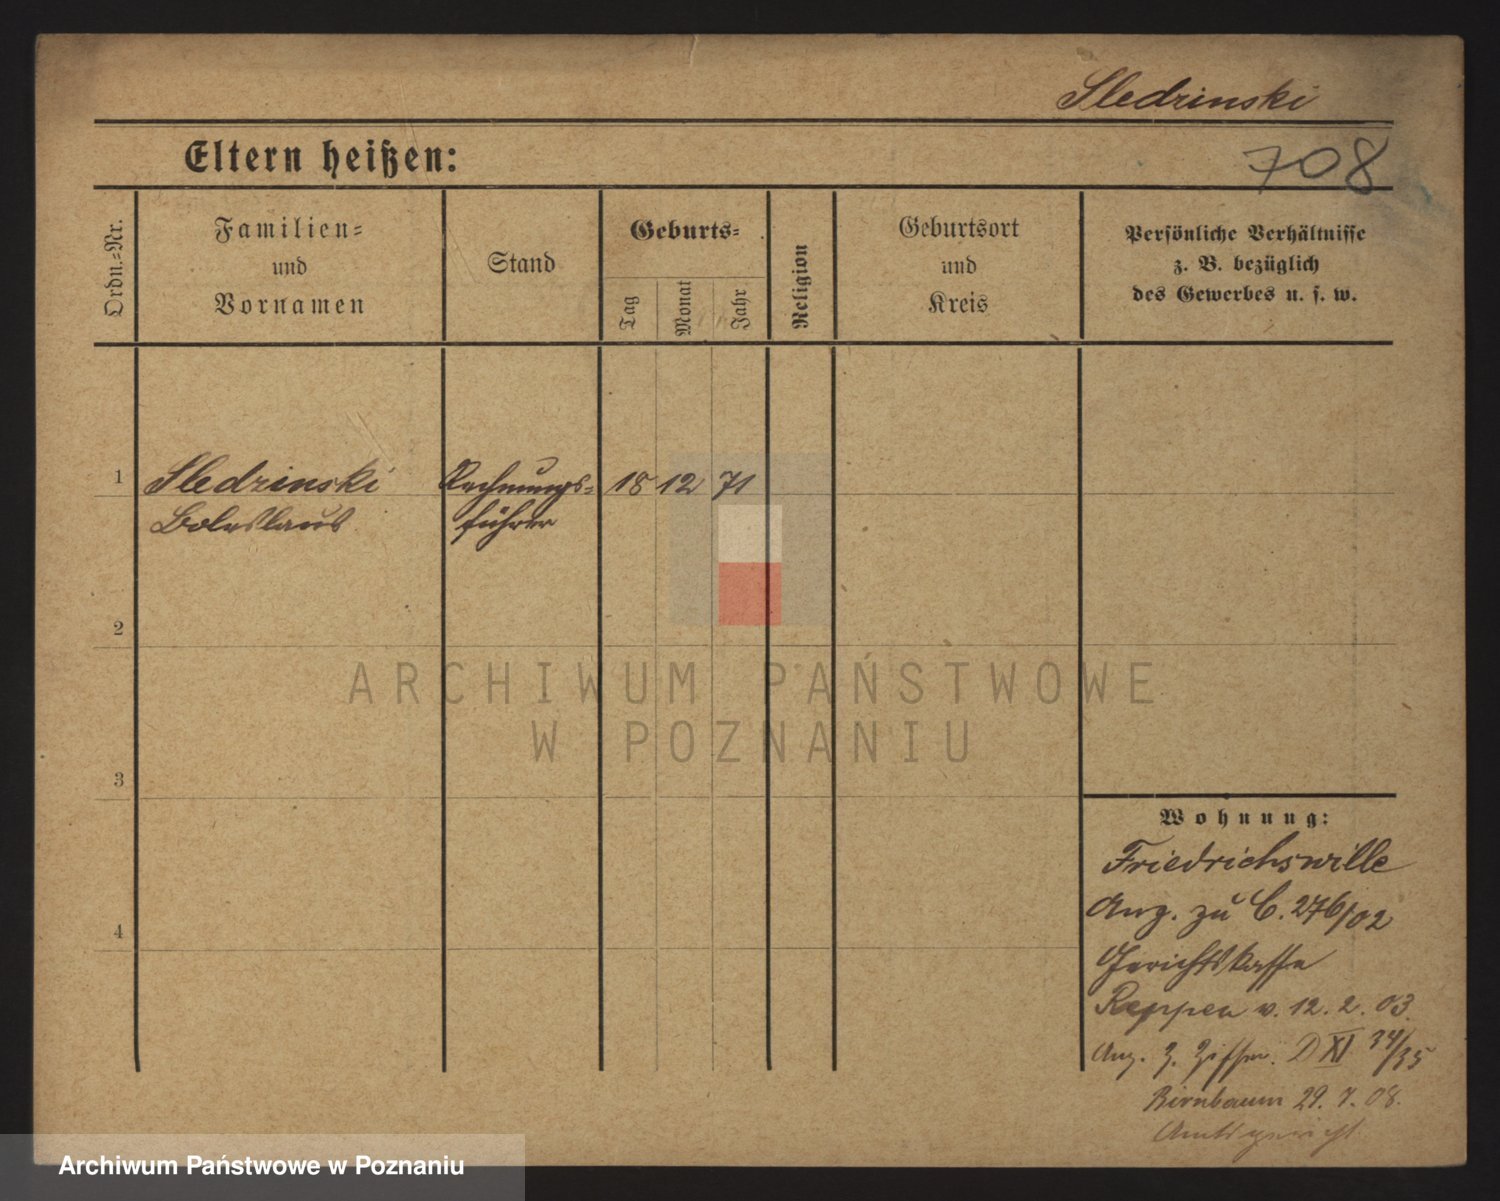 Sledzinski
Eltern heißen:
708
Ordn.-Nr.
Familien-
und
Vornamen
Stand
Geburts-
Tag
Monat
Jahr
Religion
Geburtsort
und
Kreis
Persönliche Verhältnisse
z. B. bezüglich
des Gewerbes u. s. w.
1
Sledzinski
Boleslaus
Rechnungs-
führer
18 12 71
2
3
4
Wohnung:
Friedrichswille
Anz. zu C. 276/02
Gerichtskasse
Reppen v. 12. 2. 03.
Anz. z. Ziffer. D XI 34/35
Birnbaum 29. 7. 08.
Amtsgericht
ARCHIWUM PAŃSTWOWE
W POZNANIU
Archiwum Państwowe w Poznaniu